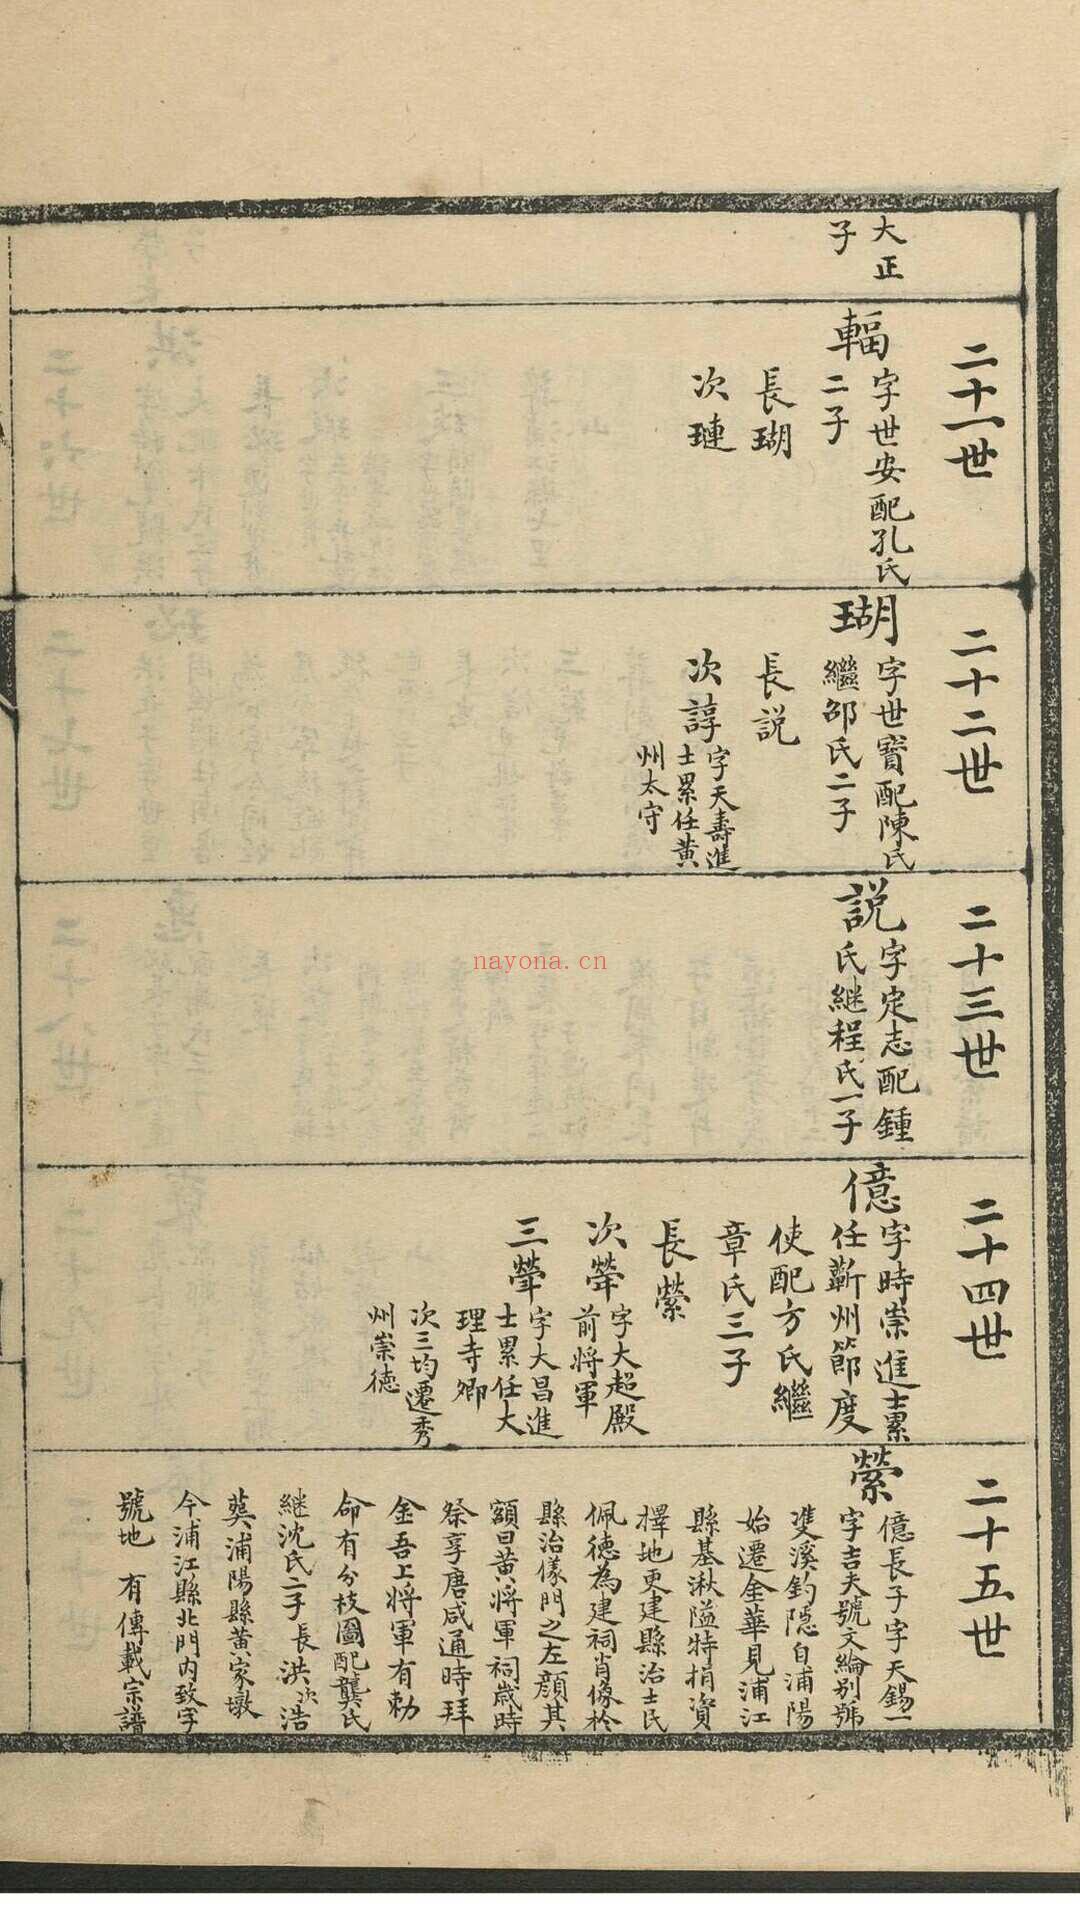 大正
子
二十一世
輻
字世安配孔氏
二子
長瑚
次璉
二十二世
瑚
字世寶配陳氏
繼邵氏二子
長説
次諄
字天壽進
士累任黄
州太守
二十三世
説
字定志配鍾
氏継程氏一子
二十四世
億
字時崇進士累
任蘄州節度
使配方氏繼
章氏三子
長縈
次犖
字大超殿
前將軍
三犖
字大昌進
士累任大
理寺卿
次三均遷秀
州崇徳
二十五世
縈
億長子字天錫一
字吉夫號文綸别號
雙溪釣隠自浦陽
始遷金華見浦江
縣基湫隘特捐資
擇地更建縣治士民
佩徳為建祠肖像於
縣治儀門之左顔其
額曰黄將軍祠歳時
祭享唐咸通時拜
金吾上將軍有勅
命有分枝圖配龔氏
継沈氏二子長洪次浩
葬浦陽縣黄家墩
今浦江縣北門内致字
號地 有傳載宗譜
nayona.cn